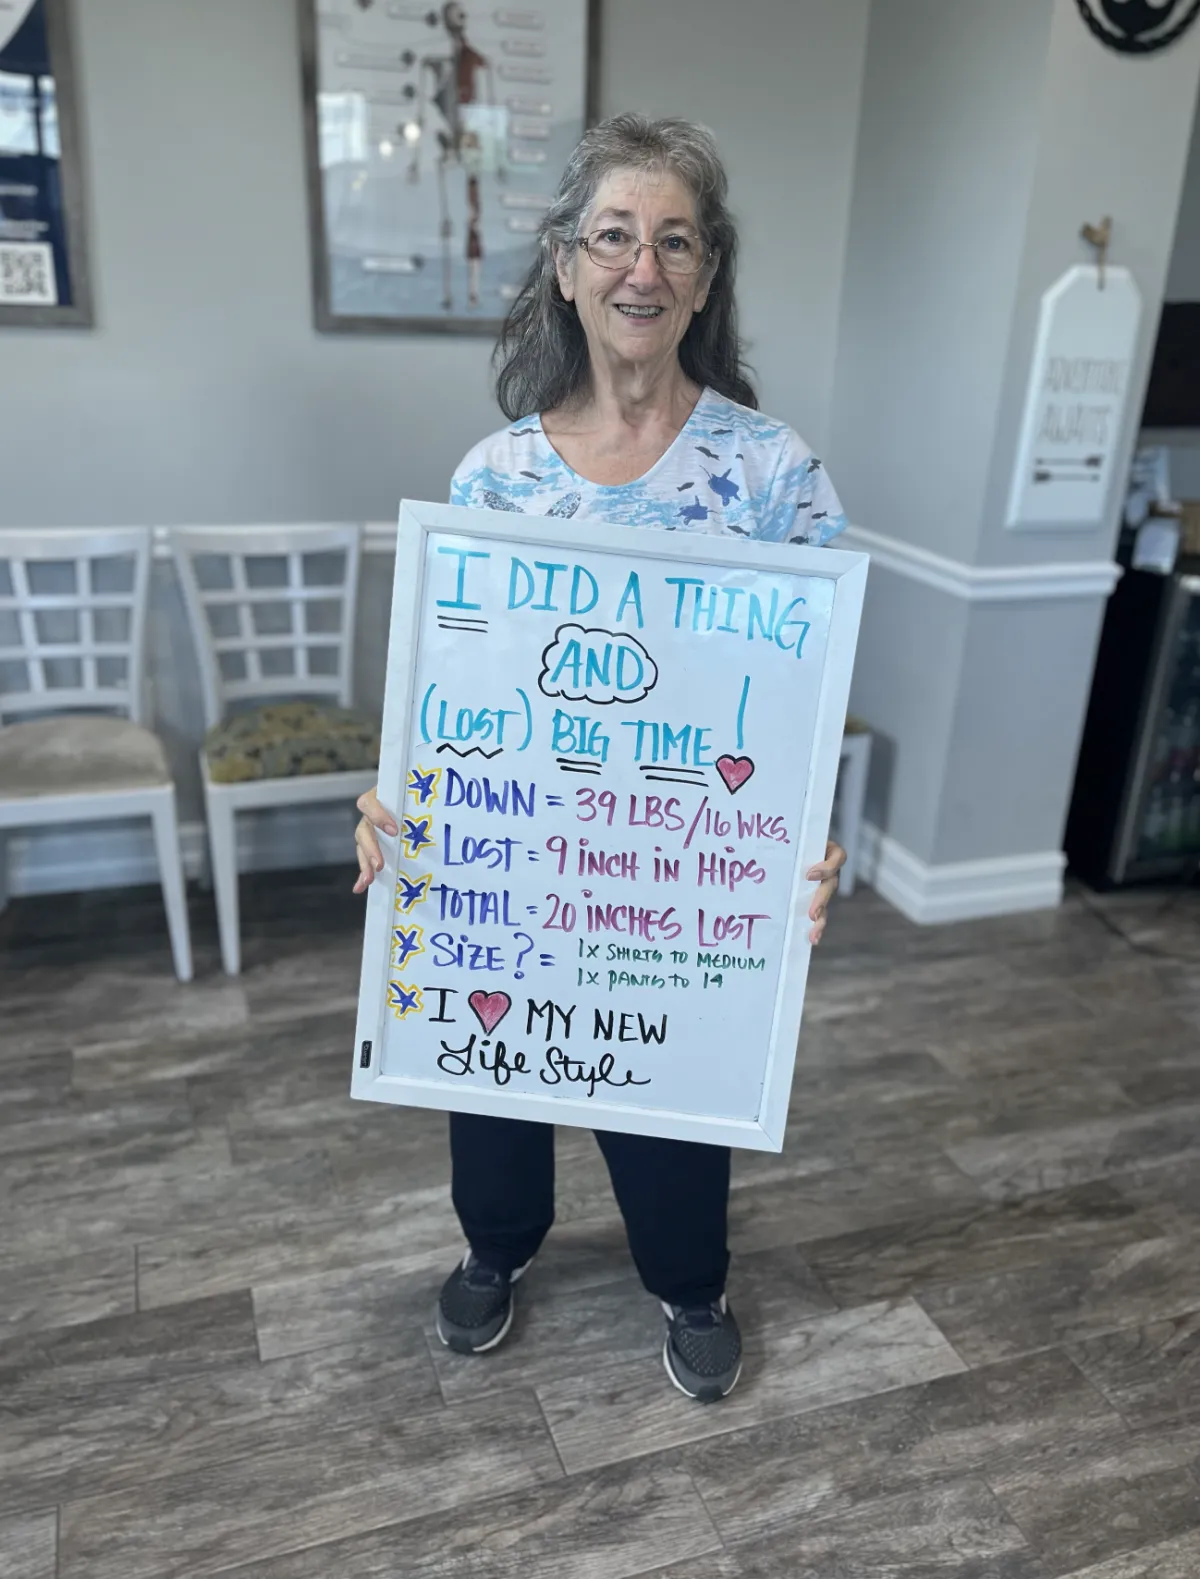 I DID A THING
AND
(LOST) BIG TIME!
DOWN = 39 LBS/16 WKS.
LOST = 9 iNCH iN Hips
TOTAL = 20 iNCHES LOST
SiZE? = 1x SHIRTS TO MEDIUM
1x PANTS TO 14
I ♥ MY NEW
Life Style
ADVENTURE
AWAITS